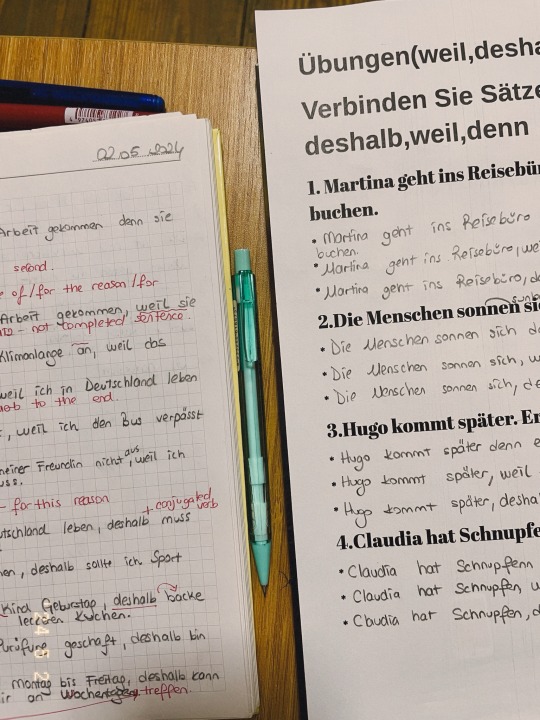 02.05.2024
Arbeit gekommen denn sie
second.
e of/for the reason/for
Arbeit gekommen, weil sie
- not completed sentence.
Klimanlange an, weil das
weil ich in Deutschland leben
verb to the end.
, weil ich den Bus verpässt
meiner Freundin nicht aus, weil ich
uss.
- for this reason
+ conjugated verb
utschland leben, deshalb muss
en, deshalb sollte ich Sport
Kind Geburstag, deshalb backe
leckren Kuchen.
Purüfung geschaft, deshalb bin
Montag bis Freitag, deshalb kann
ir an Wochen treffen.
Übungen(weil,desha
Verbinden Sie Sätze
deshalb,weil,denn
1. Martina geht ins Reisebür
buchen.
• Martina geht ins Reisebüro
buchen.
• Martina geht ins Reisebüro, wei
• Martina geht ins Reisebüro, d
2.Die Menschen sonnen si
• Die Menschen sonnen sich d
• Die Menschen sonnen sich, w
• Die Menschen sonnen sich, de
3.Hugo kommt später. Er
• Hugo kommt später denn e
• Hugo kommt später, weil
• Hugo kommt später, desha
4.Claudia hat Schnupfe
• Claudia hat Schnupfenn
• Claudia hat Schnupfen, w
• Claudia hat Schnupfen, d